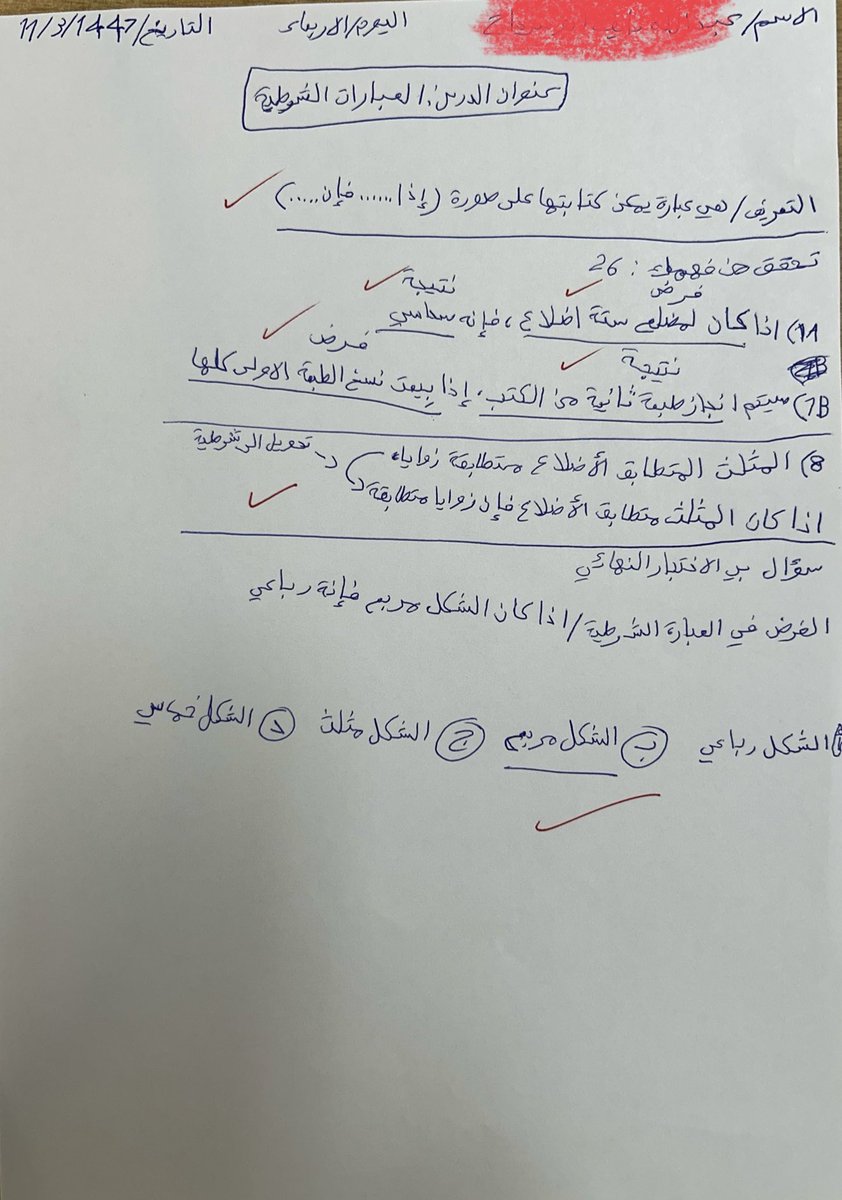 الاسم/ اليوم/الاربعاء التاريخ/11/3/1447
عنوان الدرس: العبارات الشرطية
التعريف/هي عبارة يمكن كتابتها على صورة (إذا ...... فإن.....)
تحقق من فهمك : 26
فرض نتيجة
1A) اذا كان لمضلع ستة اضلاع ، فإنه سداسي
نتيجة فرض
1B) سيتم انجاز طبعة ثانية من الكتب، إذا بيعت نسخ الطبعة الاولى كلها
8) المثلث المتطابق الأضلاع متطابقة زواياه تحويل الى شرطية
اذا كان المثلث متطابق الأضلاع فإن زوايا متطابقة
سؤال من الاختبار النهائي
الفرض في العبارة الشرطية/اذا كان الشكل مربع فإنة رباعي
أ الشكل رباعي ب الشكل مربع ج الشكل مثلث د الشكل خماسي